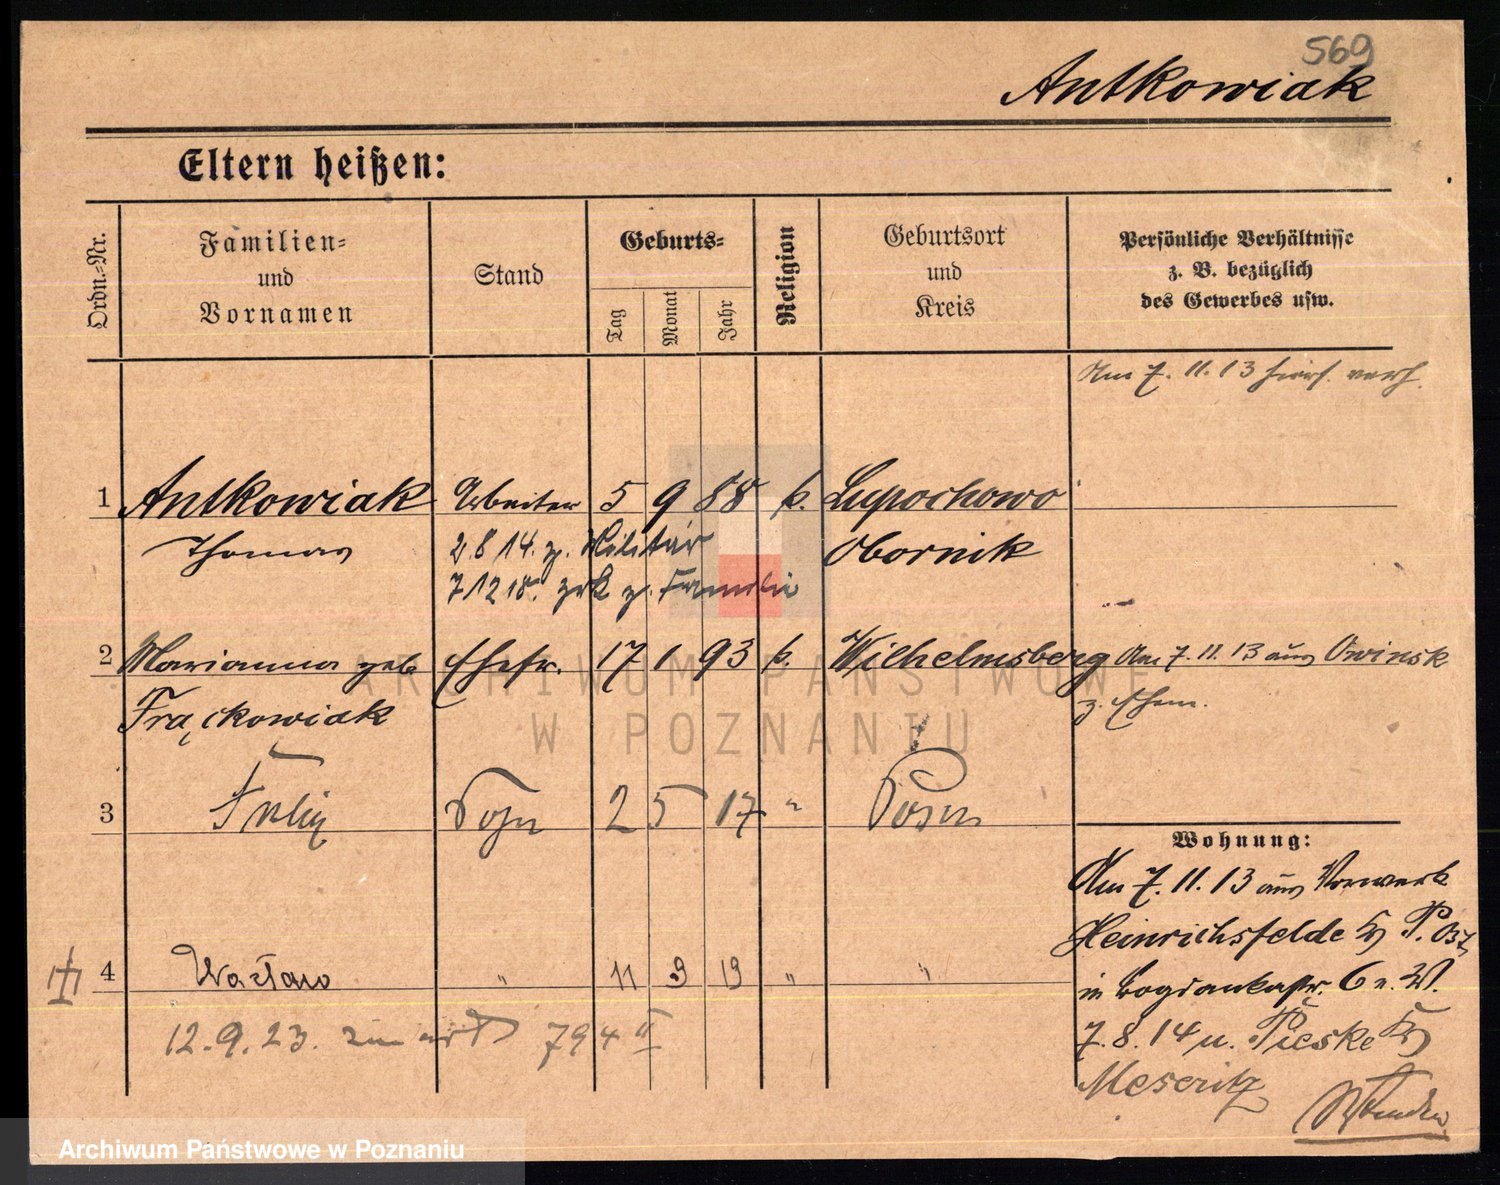 569
Antkowiak
Eltern heißen:
Ordn.-Nr.
Familien-
und
Vornamen
Stand
Geburts-
Tag
Monat
Jahr
Religion
Geburtsort
und
Kreis
Persönliche Verhältnisse
z. B. bezüglich
des Gewerbes usw.
Am 7. 11. 13 verh.
1 Antkowiak Arbeiter 5 9 88 k. Lupochowo
Thomas 2 8 14. z. Militär Obornik
7 12 18. zrk z. Familie
2 Marianna geb Ehefr. 17 1 93 k. Wilhelmsberg Am 7. 11. 13 aus Owinsk
Frąckowiak z. Ehem.
3 Felix Sohn 2 5 17 " Posen
Wohnung:
Am 7. 11. 13 aus Vorwerk
Heinrichsfelde Kr P. Ost
in Bogdankastr. 6 b. W.
4 Wacław " 11 9 19 " "
7. 8. 14 n. Pieske Kr
12. 9. 23. 794 II
Meseritz
ARCHIWUM PAŃSTWOWE
W POZNANIU
Archiwum Państwowe w Poznaniu